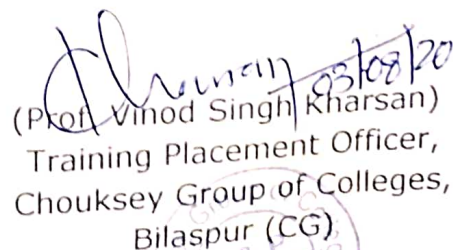 03/08/20
(Prof. Vinod Singh Kharsan)
Training Placement Officer,
Chouksey Group of Colleges,
Bilaspur (CG)